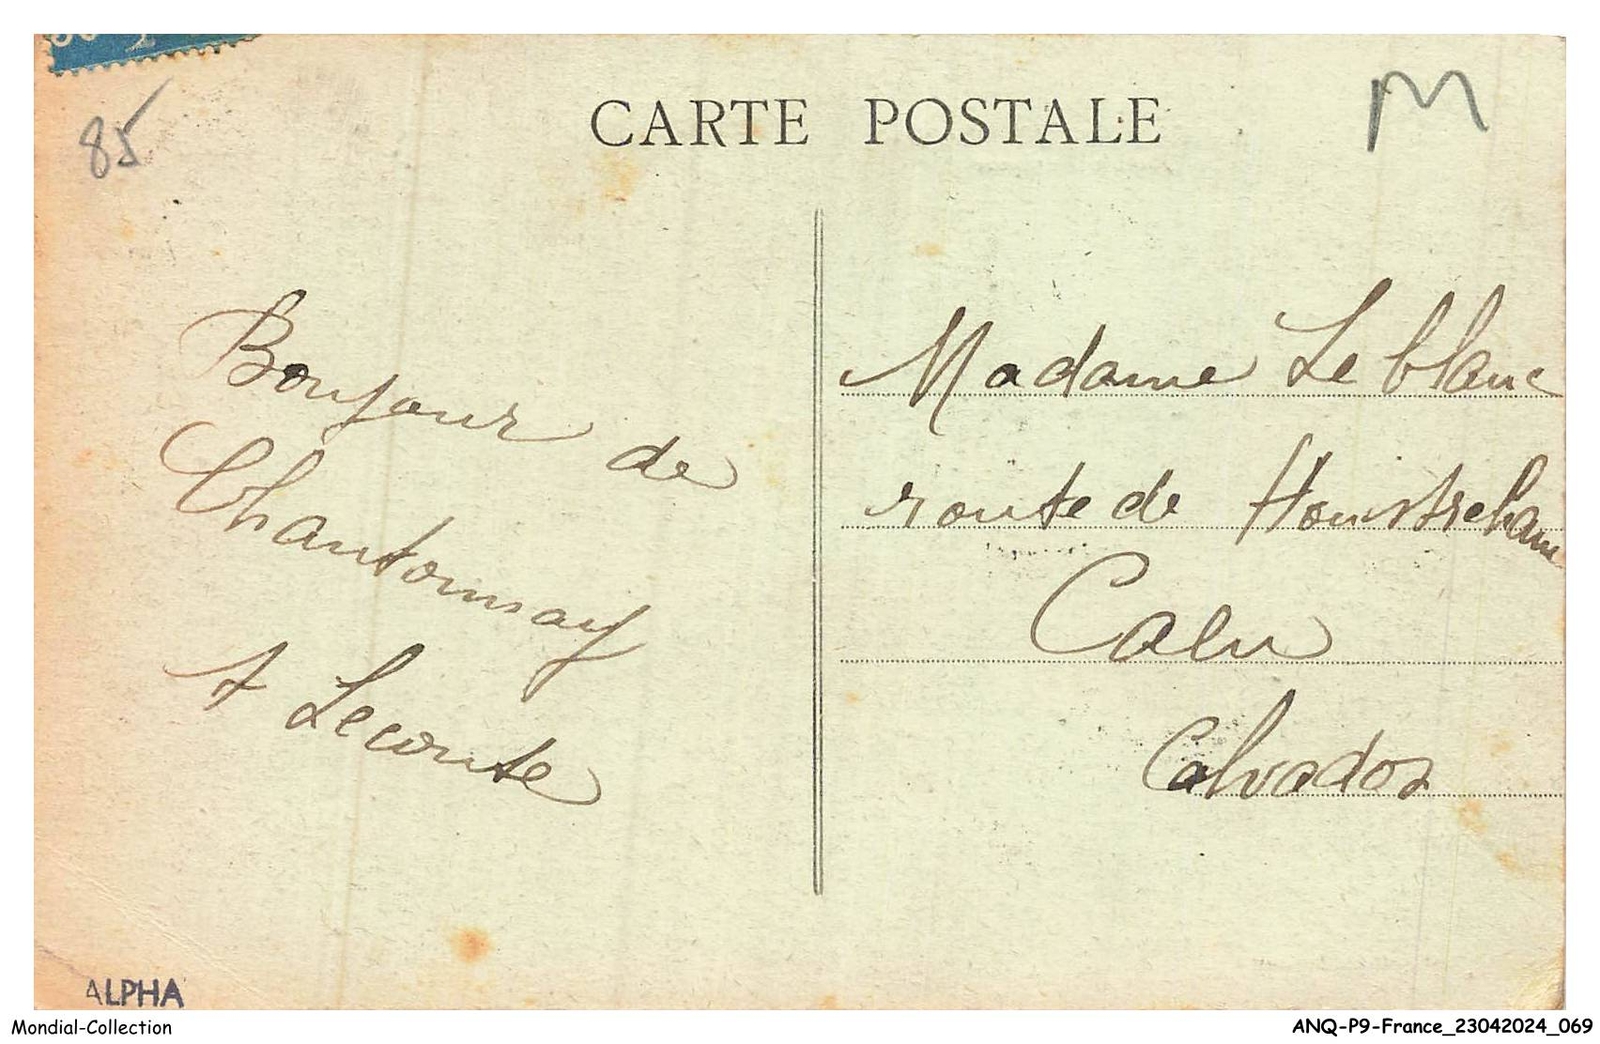 85
CARTE POSTALE
M
Bonjour de
Chantonnay
A Leconte
Madame Leblanc
route de Houistreham
Caen
Calvados
ALPHA
Mondial-Collection
ANQ-P9-France_23042024_069